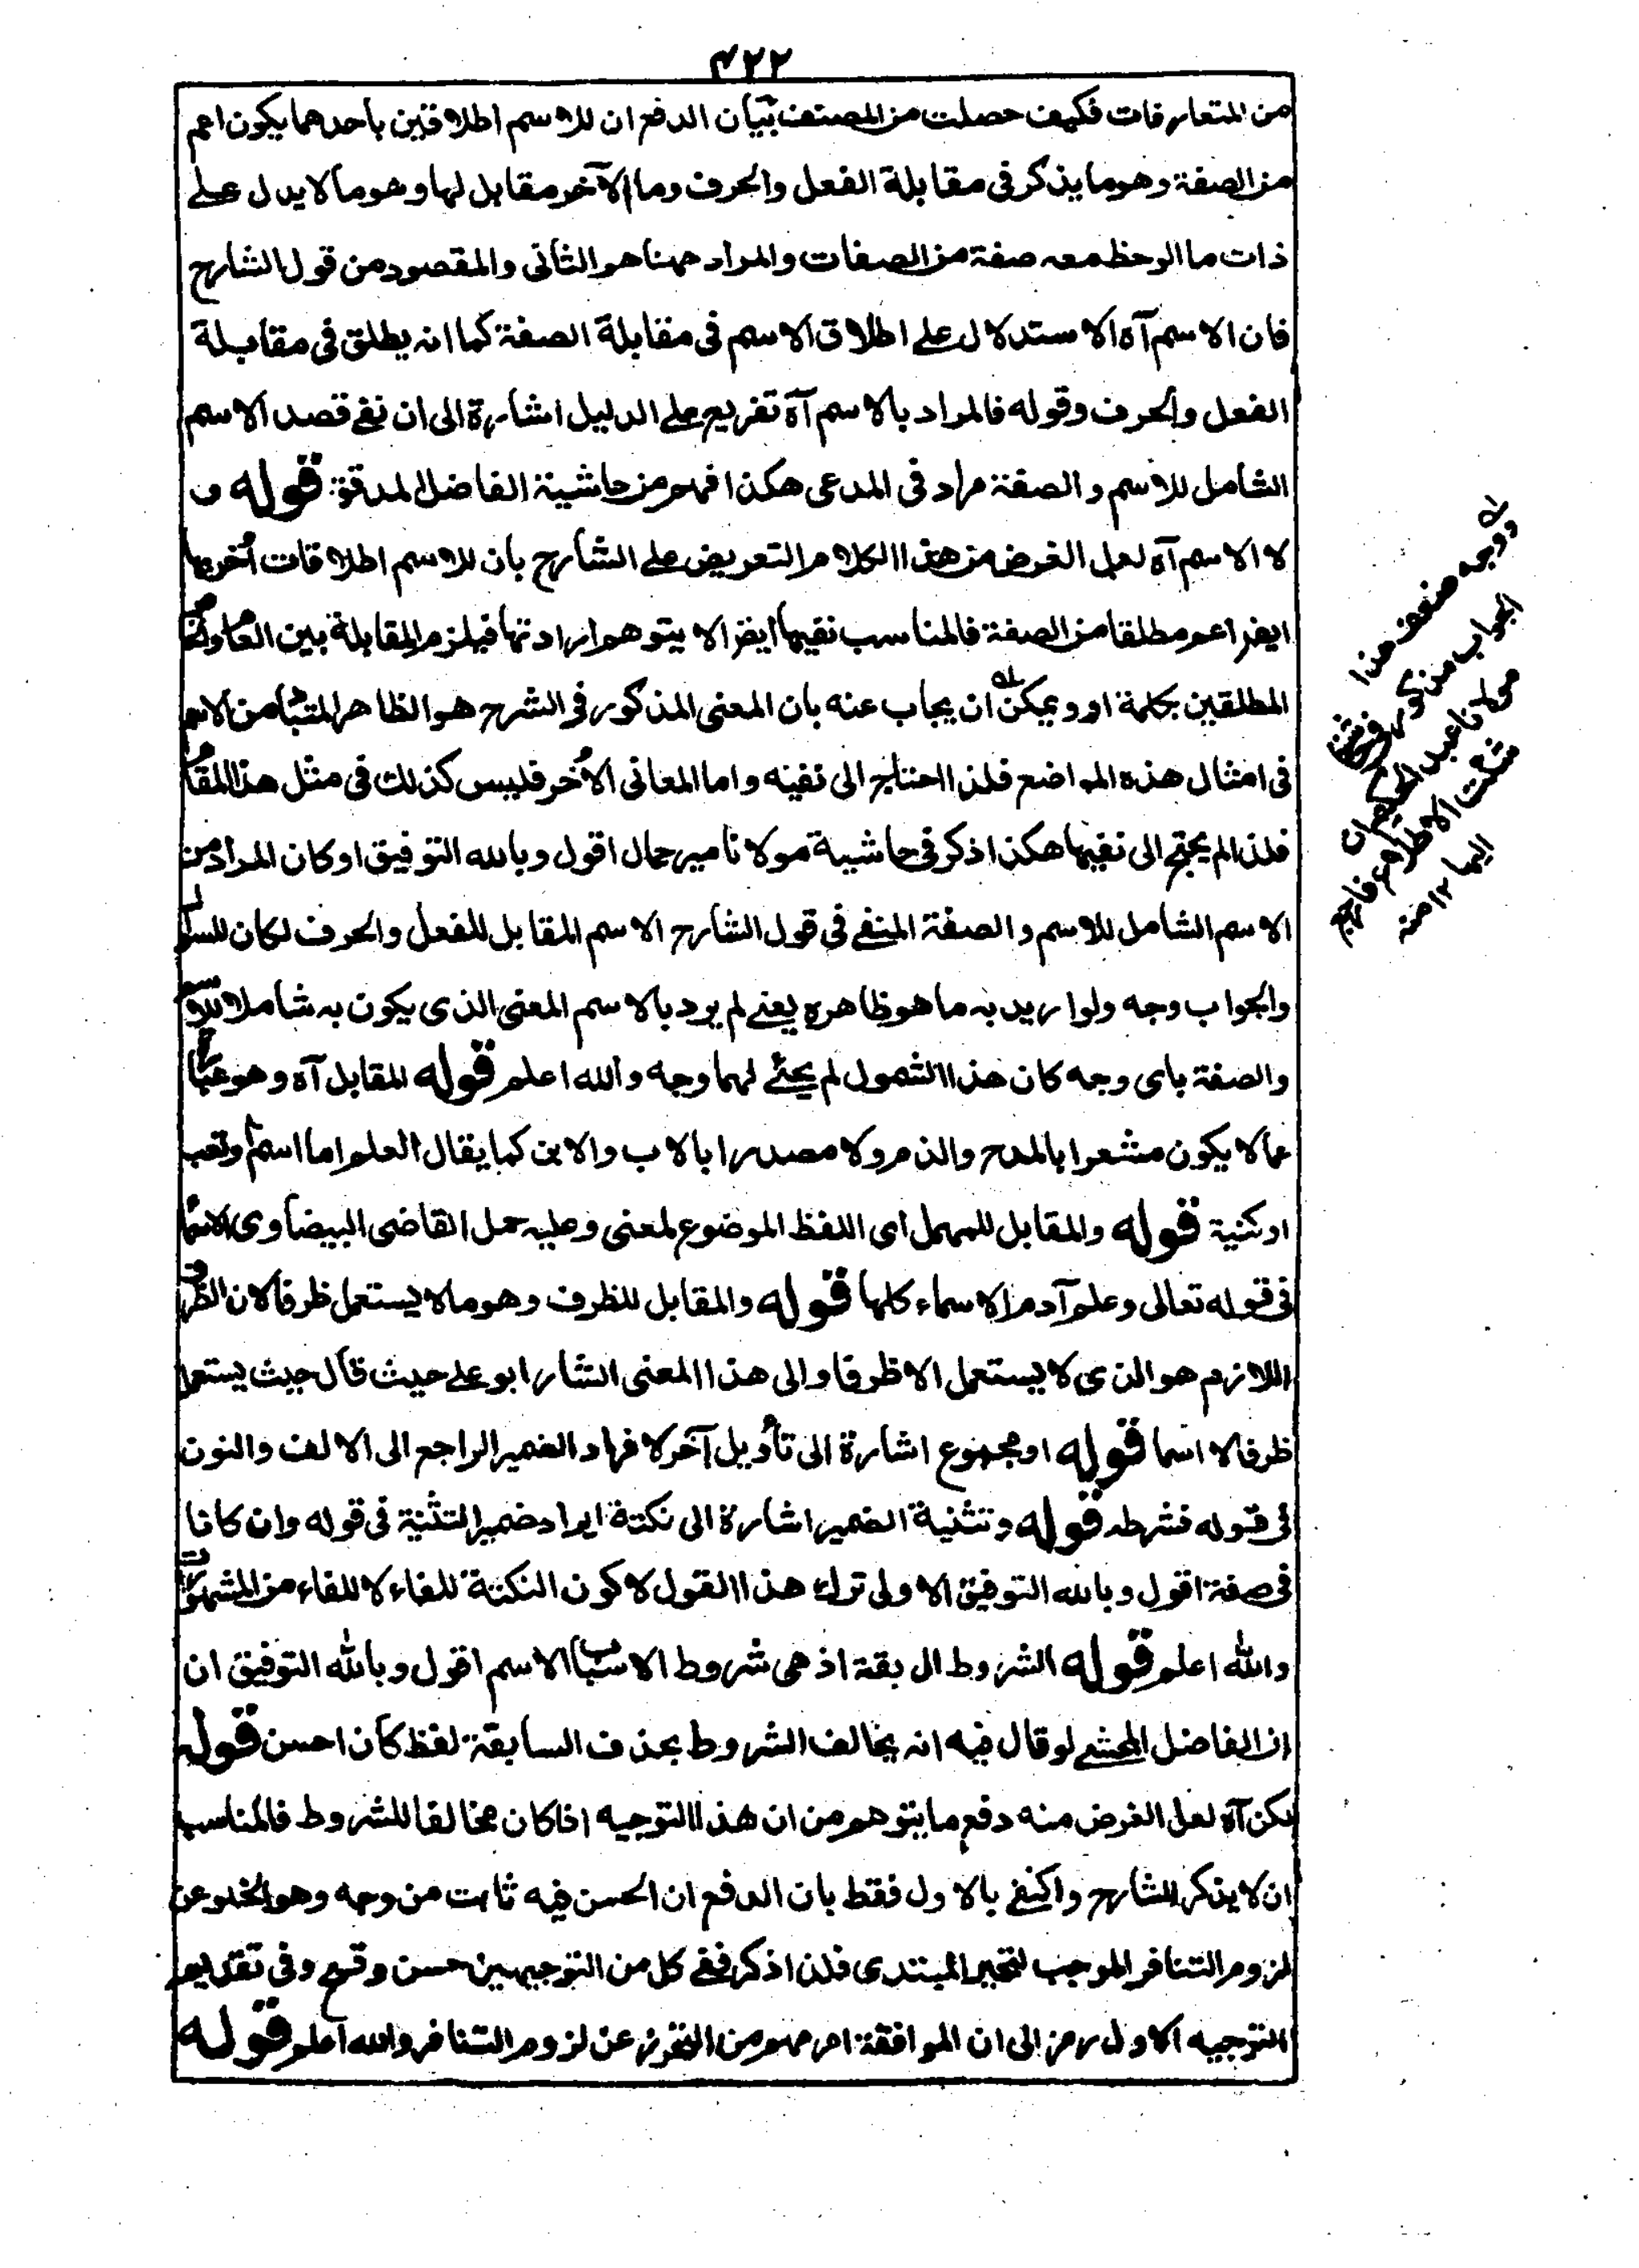 ٤٢٢
من المتعارفات فكيف حصلت من المصنف بيان الدفع ان للاسم اطلاقين باحدهما يكون اعم
من الصفة وهو ما يذكر فى مقابلة الفعل والحرف وما الآخر مقابل لها وهو ما لا يدل على
ذات ما الوحظ معه صفة من الصفات والمراد ههنا هو الثانى والمقصود من قول الشارح
فان الاسم آه الاستدلال على اطلاق الاسم فى مقابلة الصفة كما انه يطلق فى مقابلة
الفعل والحرف وقوله فالمراد بالاسم آه تفريع على الدليل اشارة الى ان نفى قصد الاسم
الشامل للاسم والصفة مراد فى المدعى هكذا فهم من حاشية الفاضل المدقق قوله و
لا الاسم آه لعل الغرض من هذا الكلام التعريض على الشارح بان للاسم اطلاقات أخر بها
ايضا اعم مطلقا من الصفة فالمناسب نفيها ايضا لا يتوهم ارادتها فيلزم المقابلة بين العام والخاص
المطلقين بكلمة او ويمكن ان يجاب عنه بان المعنى المذكور فى الشرح هو الظاهر المتبادر من الاسم
فى امثال هذه المواضع فلذا احتاج الى نفيه واما المعانى الأخر فليس كذلك فى مثل هذا المقام
فلذا لم يحتج الى نفيها هكذا ذكر فى حاشية مولانا مير جمال اقول وبالله التوفيق او كان المراد من
الاسم الشامل للاسم والصفة المنفى فى قول الشارح الاسم المقابل للفعل والحرف لكان للسؤال
والجواب وجه ولو اريد به ما هو ظاهره يعنى لم يرد بالاسم المعنى الذى يكون به شاملا للاسم
والصفة باى وجه كان هذا الشمول لم يجئ لهما وجه والله اعلم قوله المقابل آه وهو عبارة
عما لا يكون مشعرا بالمدح والذم ولا مصدرا بالاب والابن كما يقال العلم اما اسم او لقب
او كنية قوله والمقابل للمهمل اى اللفظ الموضوع لمعنى وعليه حمل القاضى البيضاوى الاسماء
فى قوله تعالى وعلم آدم الاسماء كلها قوله والمقابل للظرف وهو ما لا يستعمل ظرفا لان الظرف
اللازم هو الذى لا يستعمل الا ظرفا والى هذا المعنى اشار ابو على حيث قال حيث يستعمل
ظرفا لا اسما قوله او مجموع اشارة الى تأويل آخر لافراد الضمير الراجع الى الالف والنون
فى قوله فشرطه قوله وتثنية الضمير اشارة الى نكتة ايراد ضمير التثنية فى قوله وان كانا
فى صفة اقول وبالله التوفيق الاولى ترك هذا القول لا كون النكتة للفاء لا للفاء من المشهورات
والله اعلم قوله الشروط ال بقة اذ هى شروط الاسباب الاسم اقول وبالله التوفيق ان
ان الفاضل المحشى لو قال فيه انه يخالف الشروط بحذف السابقة لفظ كان احسن قوله
لكن آه لعل الغرض منه دفع ما يتوهم من ان هذا التوجيه اذا كان مخالفا للشروط فالمناسب
ان لا يذكر الشارح واكتفى بالاول فقط بان الدفع ان الحسن فيه ثابت من وجه وهو الخلو عن
لزوم التنافر الموجب لتحير المبتدى فلذا ذكر ففى كل من التوجيهين حسن وقبح وفى تقديم
التوجيه الاول رمز الى ان الموافقة امر مهم من التحرز عن لزوم التنافر والله اعلم قوله
له وجه ضعف هذا
الجواب مذكور فى حاشية
مولانا عبد الحكيم ان
شئت الاطلاع فارجع
اليها ١٢ منه